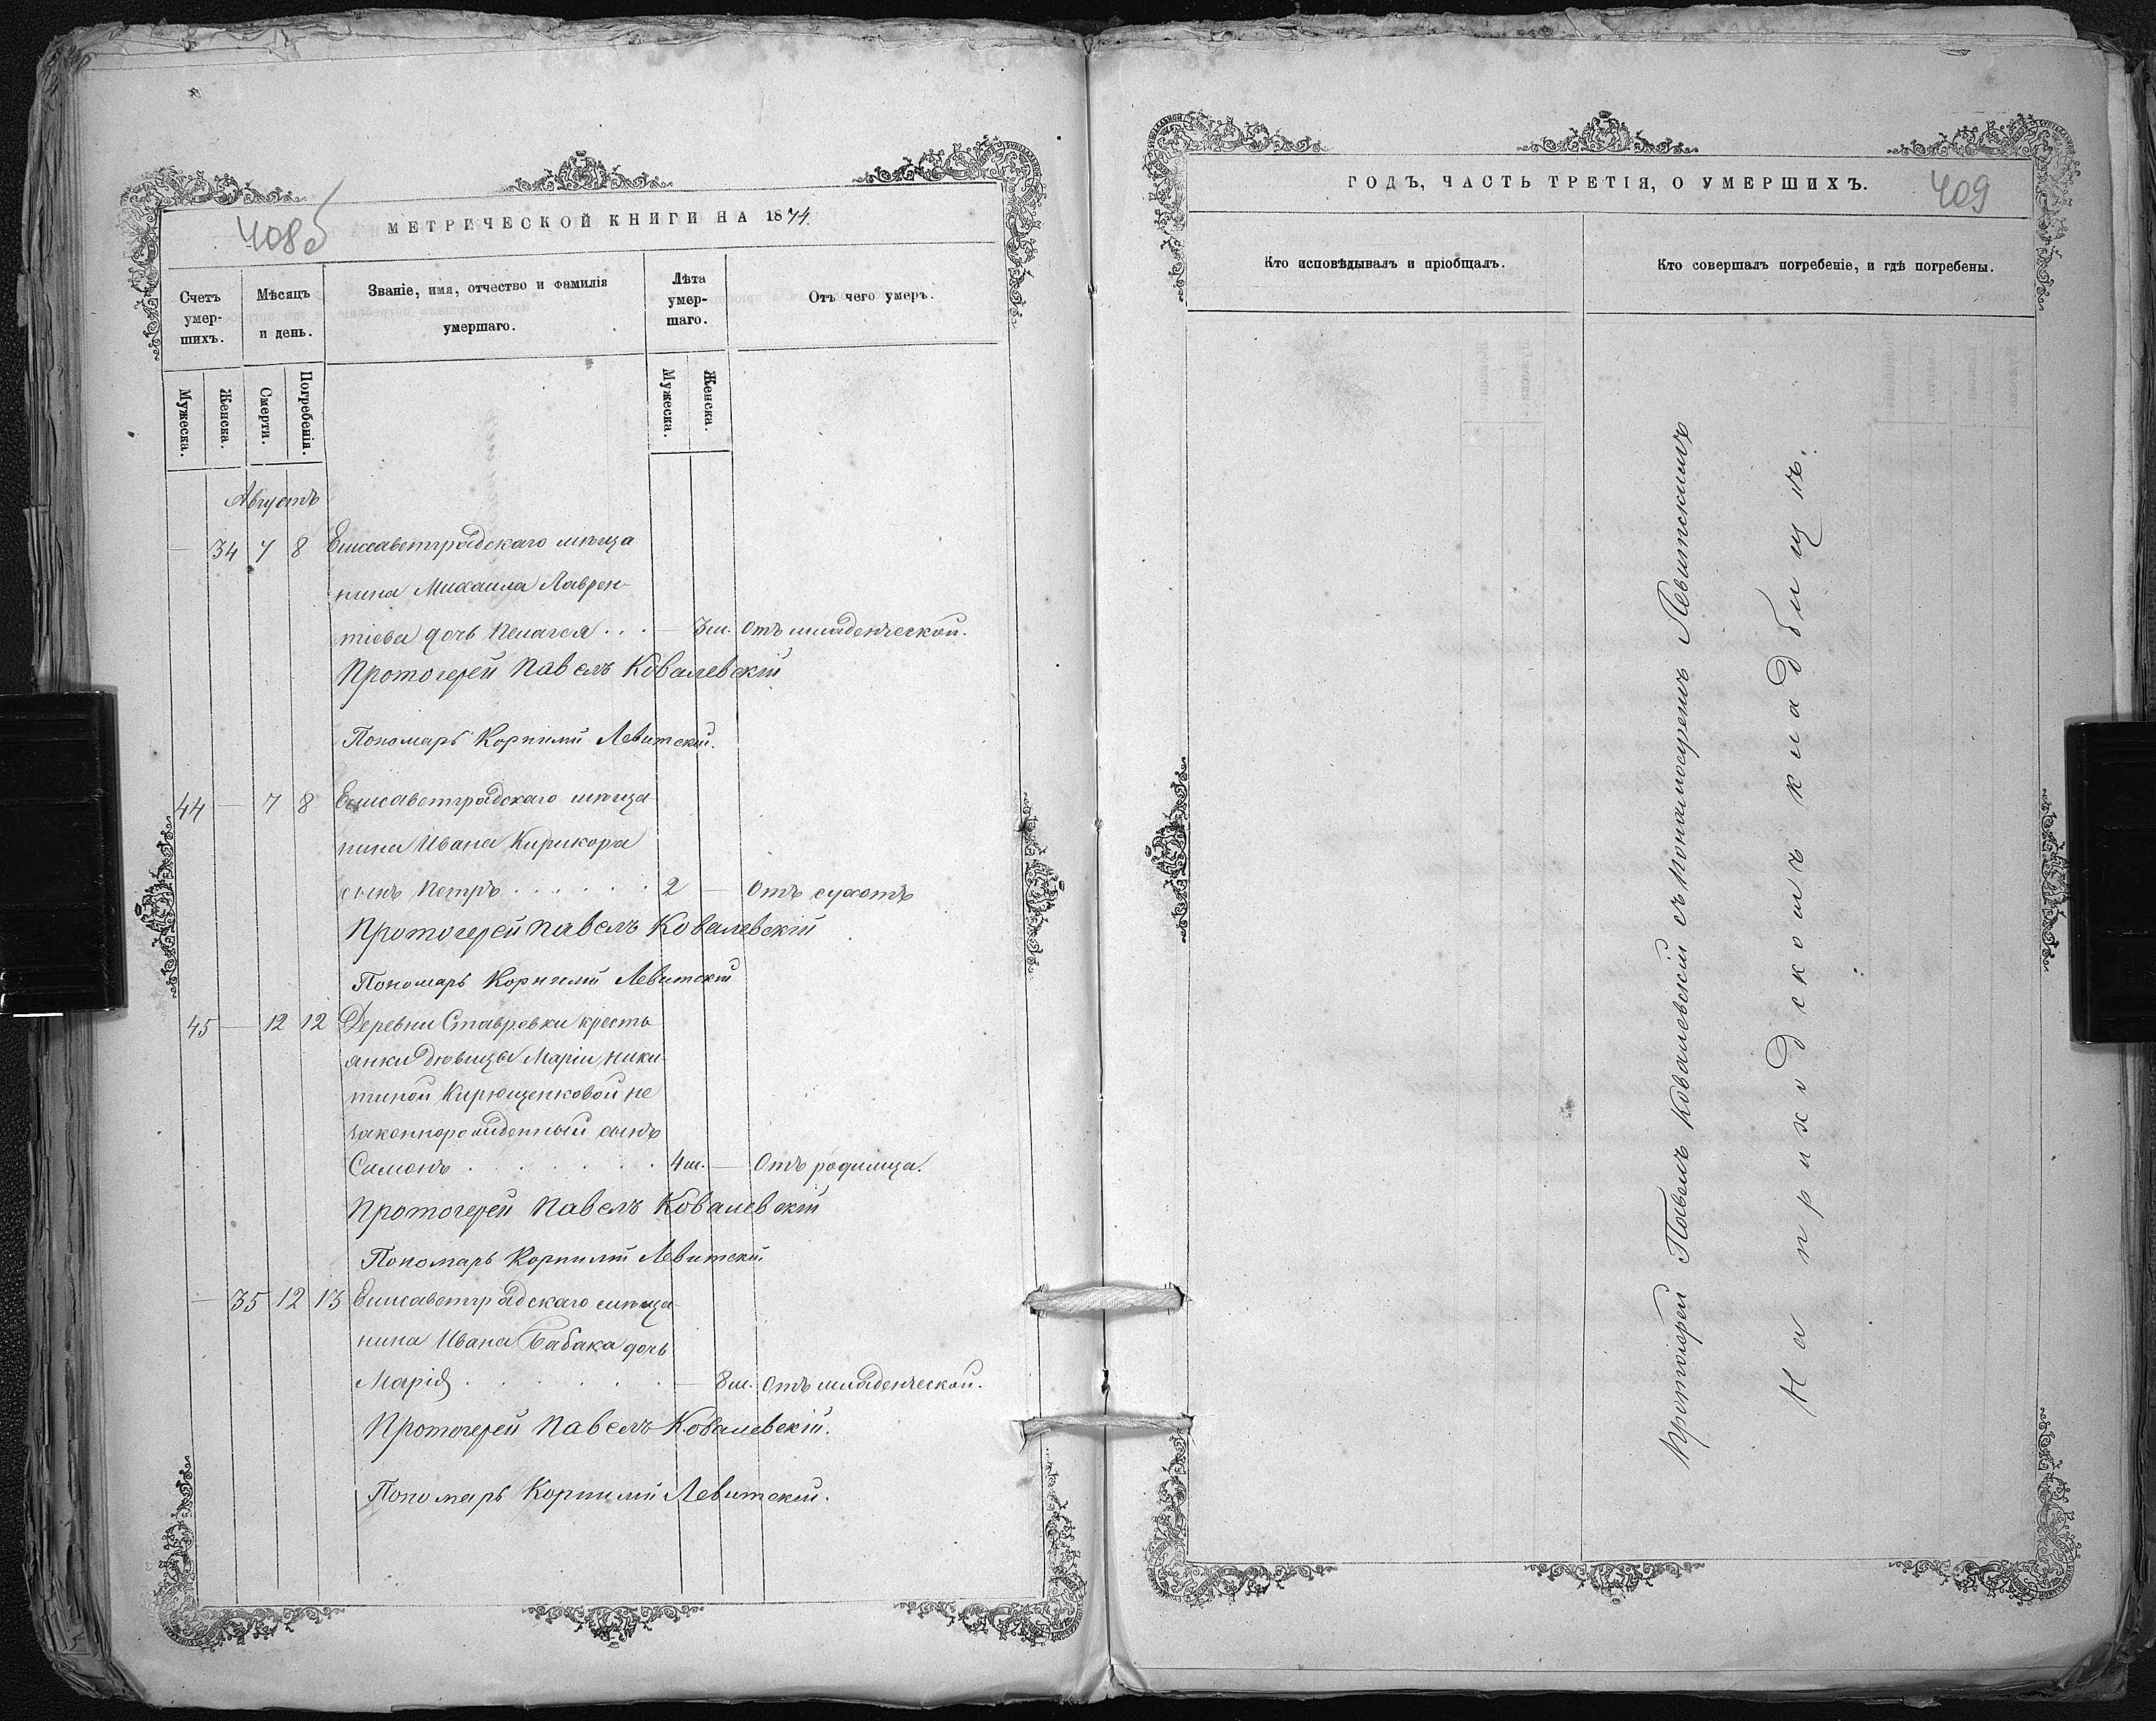 408б
МЕТРИЧЕСКОЙ КНИГИ НА 1874.
Счетъ умер-шихъ.
Мѣсяцъ и день.
Званіе, имя, отчество и фамилія умершаго.
Лѣта умер-шаго.
Отъ чего умеръ.
Мужеска.
Женска.
Смерти.
Погребенія.
Мужеска.
Женска.
Августъ
— 34 7 8 Елисаветградскаго мѣща
нина Михаила Лаврен-
тіева дочь Пелагея . . . — 3м. Отъ младенческой.
Протоіерей Павелъ Ковалевскій
Пономарь Корнилій Левитскій.
44 — 7 8 Елисаветградскаго мѣща
нина Ивана Кирикора
сынъ Петръ . . . . . . 2 — Отъ сухотъ
Протоіерей Павелъ Ковалевскій
Пономарь Корнилій Левитскій
45 — 12 12 Деревни Ставровки кресть
янки дѣвицы Маріи Ники
тиной Кирющенковой не
законнорожденный сынъ
Самонъ . . . . . . . 4м. — Отъ родимца.
Протоіерей Павелъ Ковалевскій
Пономарь Корнилій Левитскій
— 35 12 13 Елисаветградскаго мѣща-
нина Ивана Бабака дочь
Марія . . . . . . — 8м. Отъ младенческой.
Протоіерей Павелъ Ковалевскій.
Пономарь Корнилій Левитскій.
ГОДЪ, ЧАСТЬ ТРЕТІЯ, О УМЕРШИХЪ.
409
Кто исповѣдывалъ и пріобщалъ.
Кто совершалъ погребеніе, и гдѣ погребены.
Протоіерей Павелъ Ковалевскій съ пономаремъ Левитскимъ
На приходскомъ кладбищѣ.